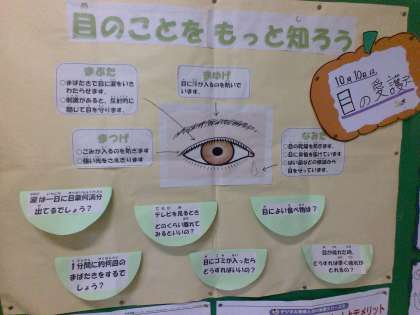 目のことをもっと知ろう
10月10日は
目の愛護デー
まぶた
○まばたきで目に涙をいき
わたらせます。
○刺激があると、反射的に
閉じて目を守ります。
まゆげ
目に汗が入るのを防いで
います。
まつげ
○ごみが入るのを防ぎます
○強い光をさえぎります
なみだ
○目の乾燥を防ぎます。
目を守っています。
涙は一日に目薬何滴分
出てるでしょう？
テレビを見るとき
どのくらい離れて
みるといいの？
目によい食べ物は？
1分間に約何回の
まばたきをするで
しょう？
目にゴミが入ったら
どうすればいいの？
目が疲れた時、
どうすれば早く疲れが
とれるの？